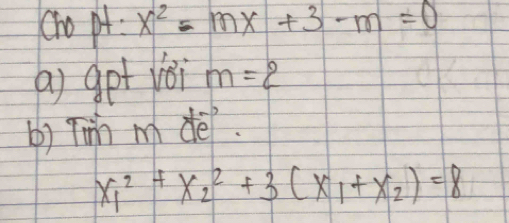 Cho pt: x² - mx + 3 - m = 0
a) gpt với m = 2
b) Tìm m để.
x₁² + x₂² + 3(x₁ + x₂) = 8